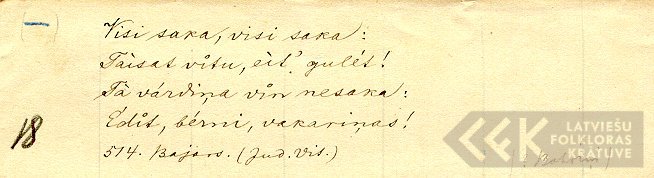 Visi saka, visi saka:
Taisat vītu, eit' gulét!
18
Tà várdiņa vīn nesaka:
Edīt, bérni, vakariņas!
514. Bajārs. (Jud. Vit.)
LATVIEŠU
FOLKLORAS
KRĀTUVE
LFK